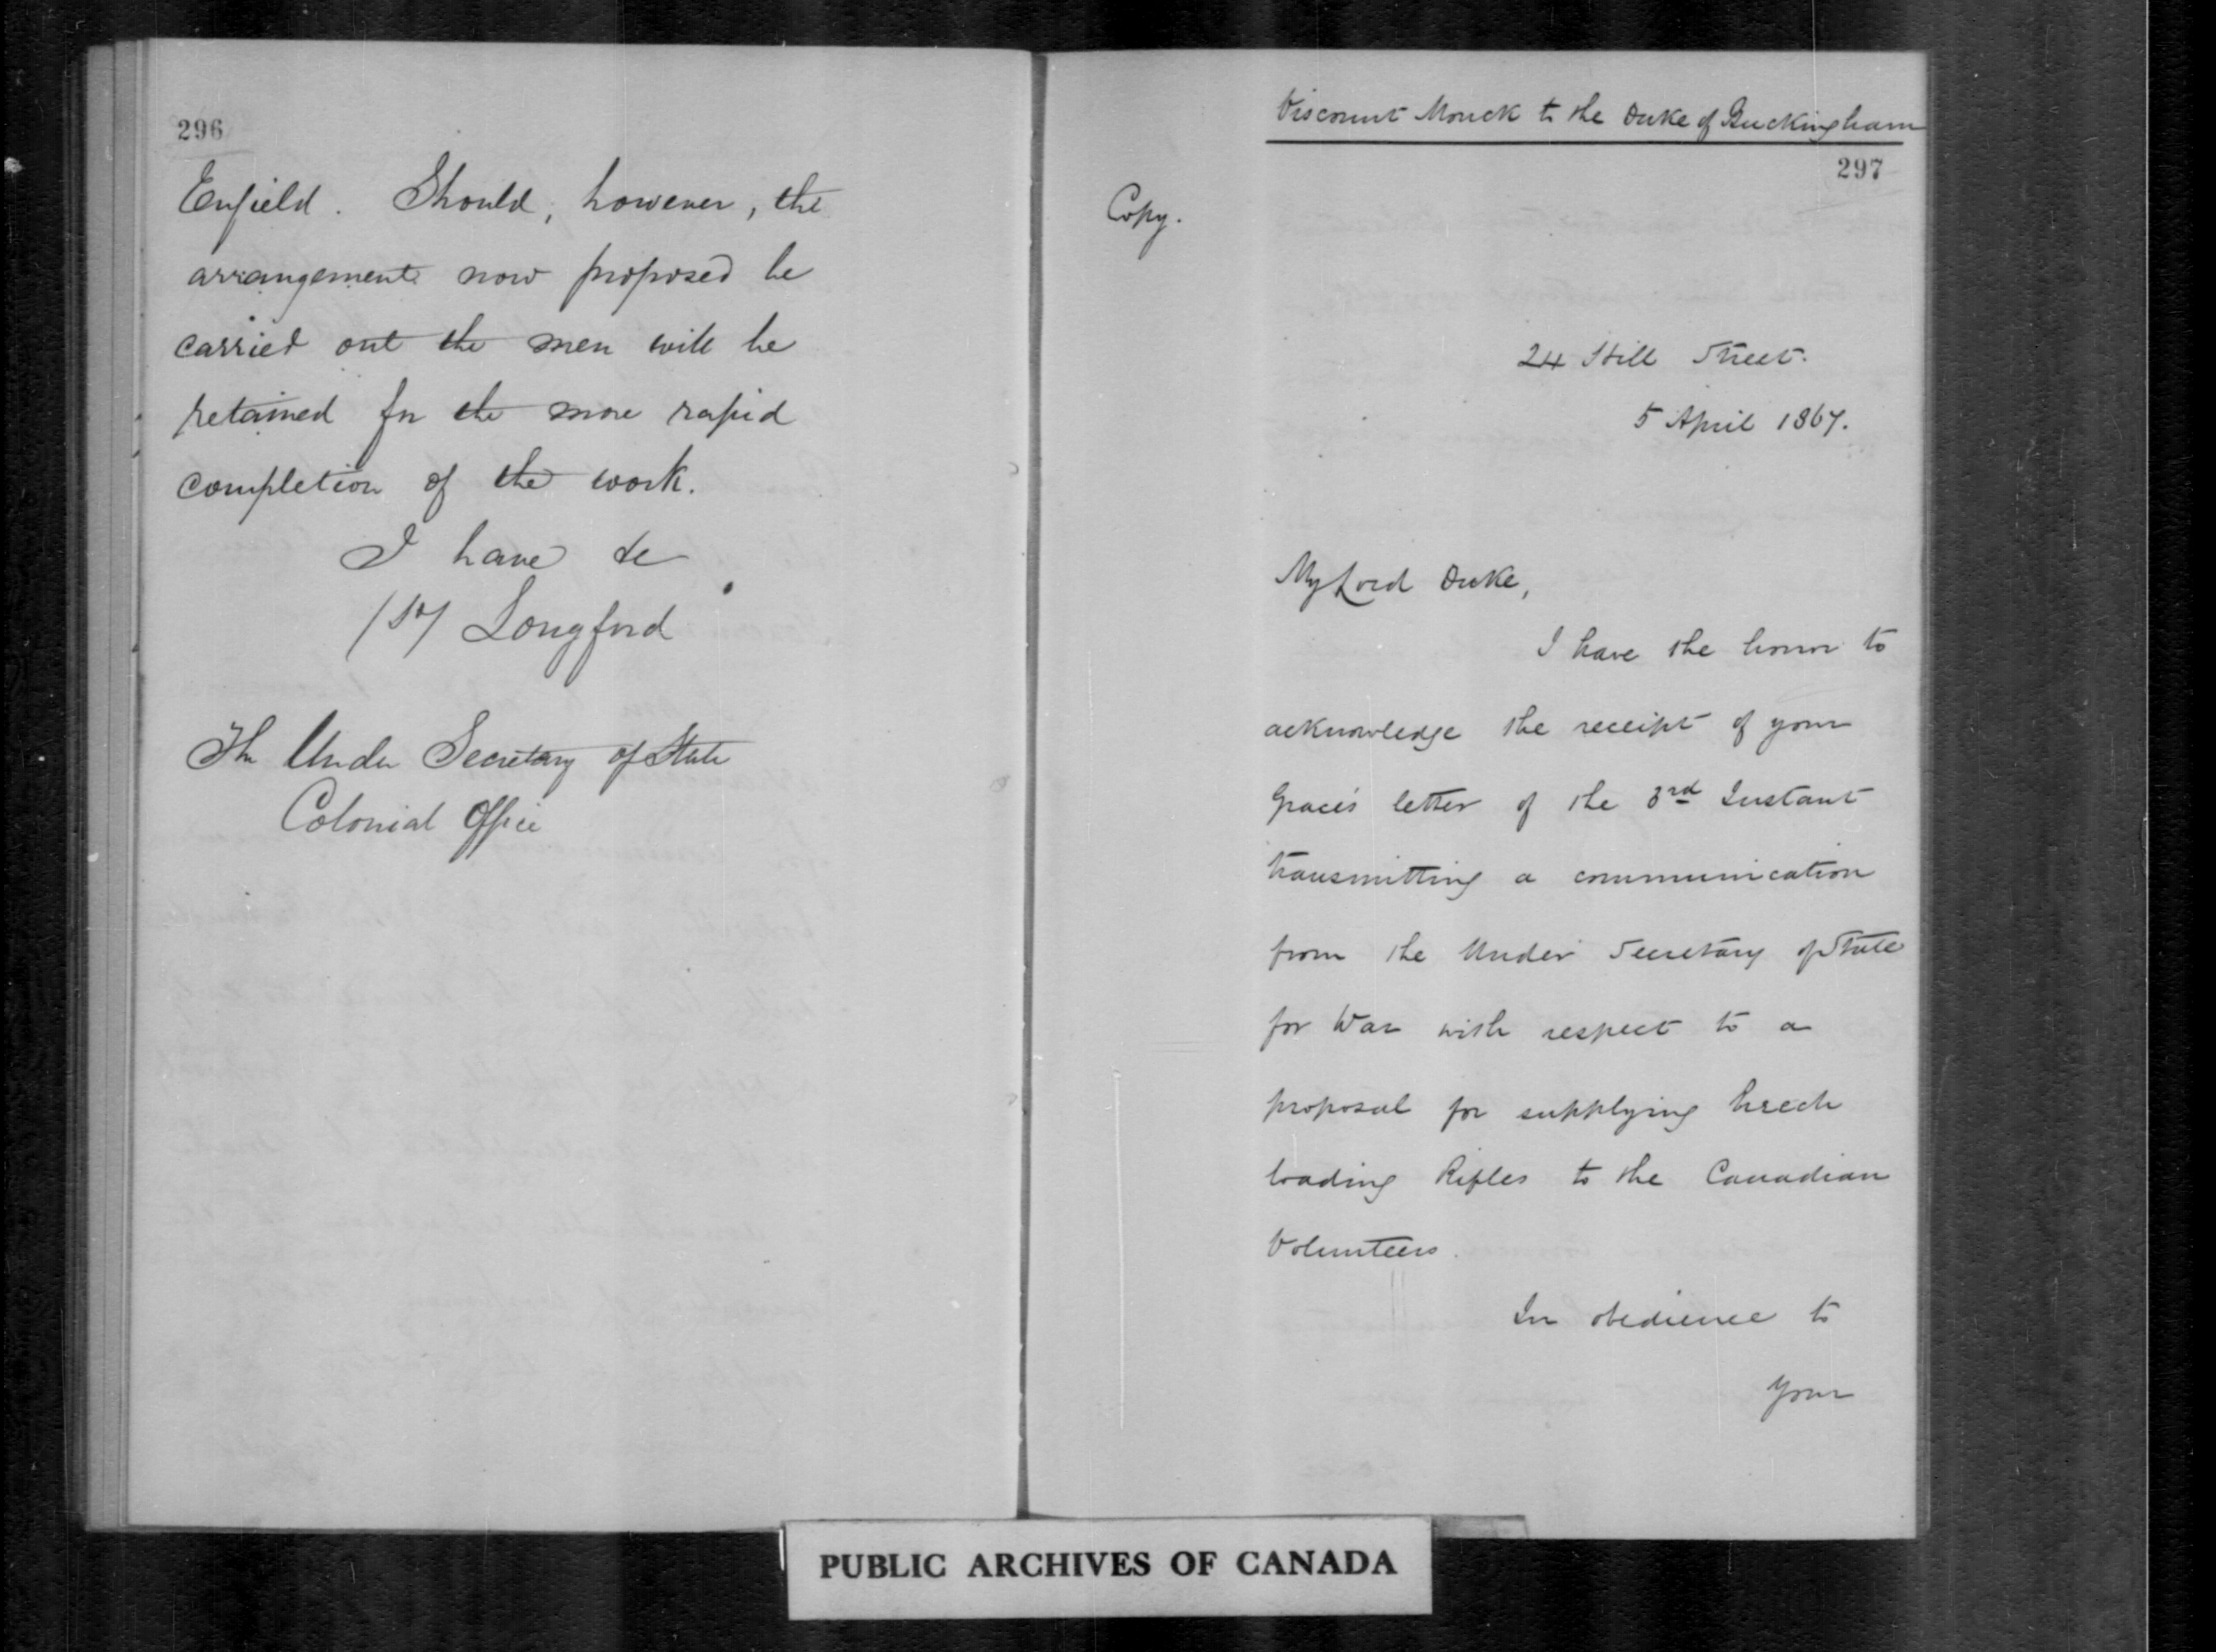 296
Enfield. Should, however, the
arrangements now proposed be
carried out the men will be
retained for the more rapid
completion of the work.
I have &c
(sd) Longford
The Under Secretary of State
Colonial Office
Viscount Monck to the Duke of Buckingham
297
Copy.
24 Hill Street.
5 April 1867.
My Lord Duke,
I have the honor to
acknowledge the receipt of your
Grace's letter of the 3rd Instant
transmitting a communication
from the Under Secretary of State
for War with respect to a
proposal for supplying breech
loading Rifles to the Canadian
Volunteers.
In obedience to
Your
PUBLIC ARCHIVES OF CANADA